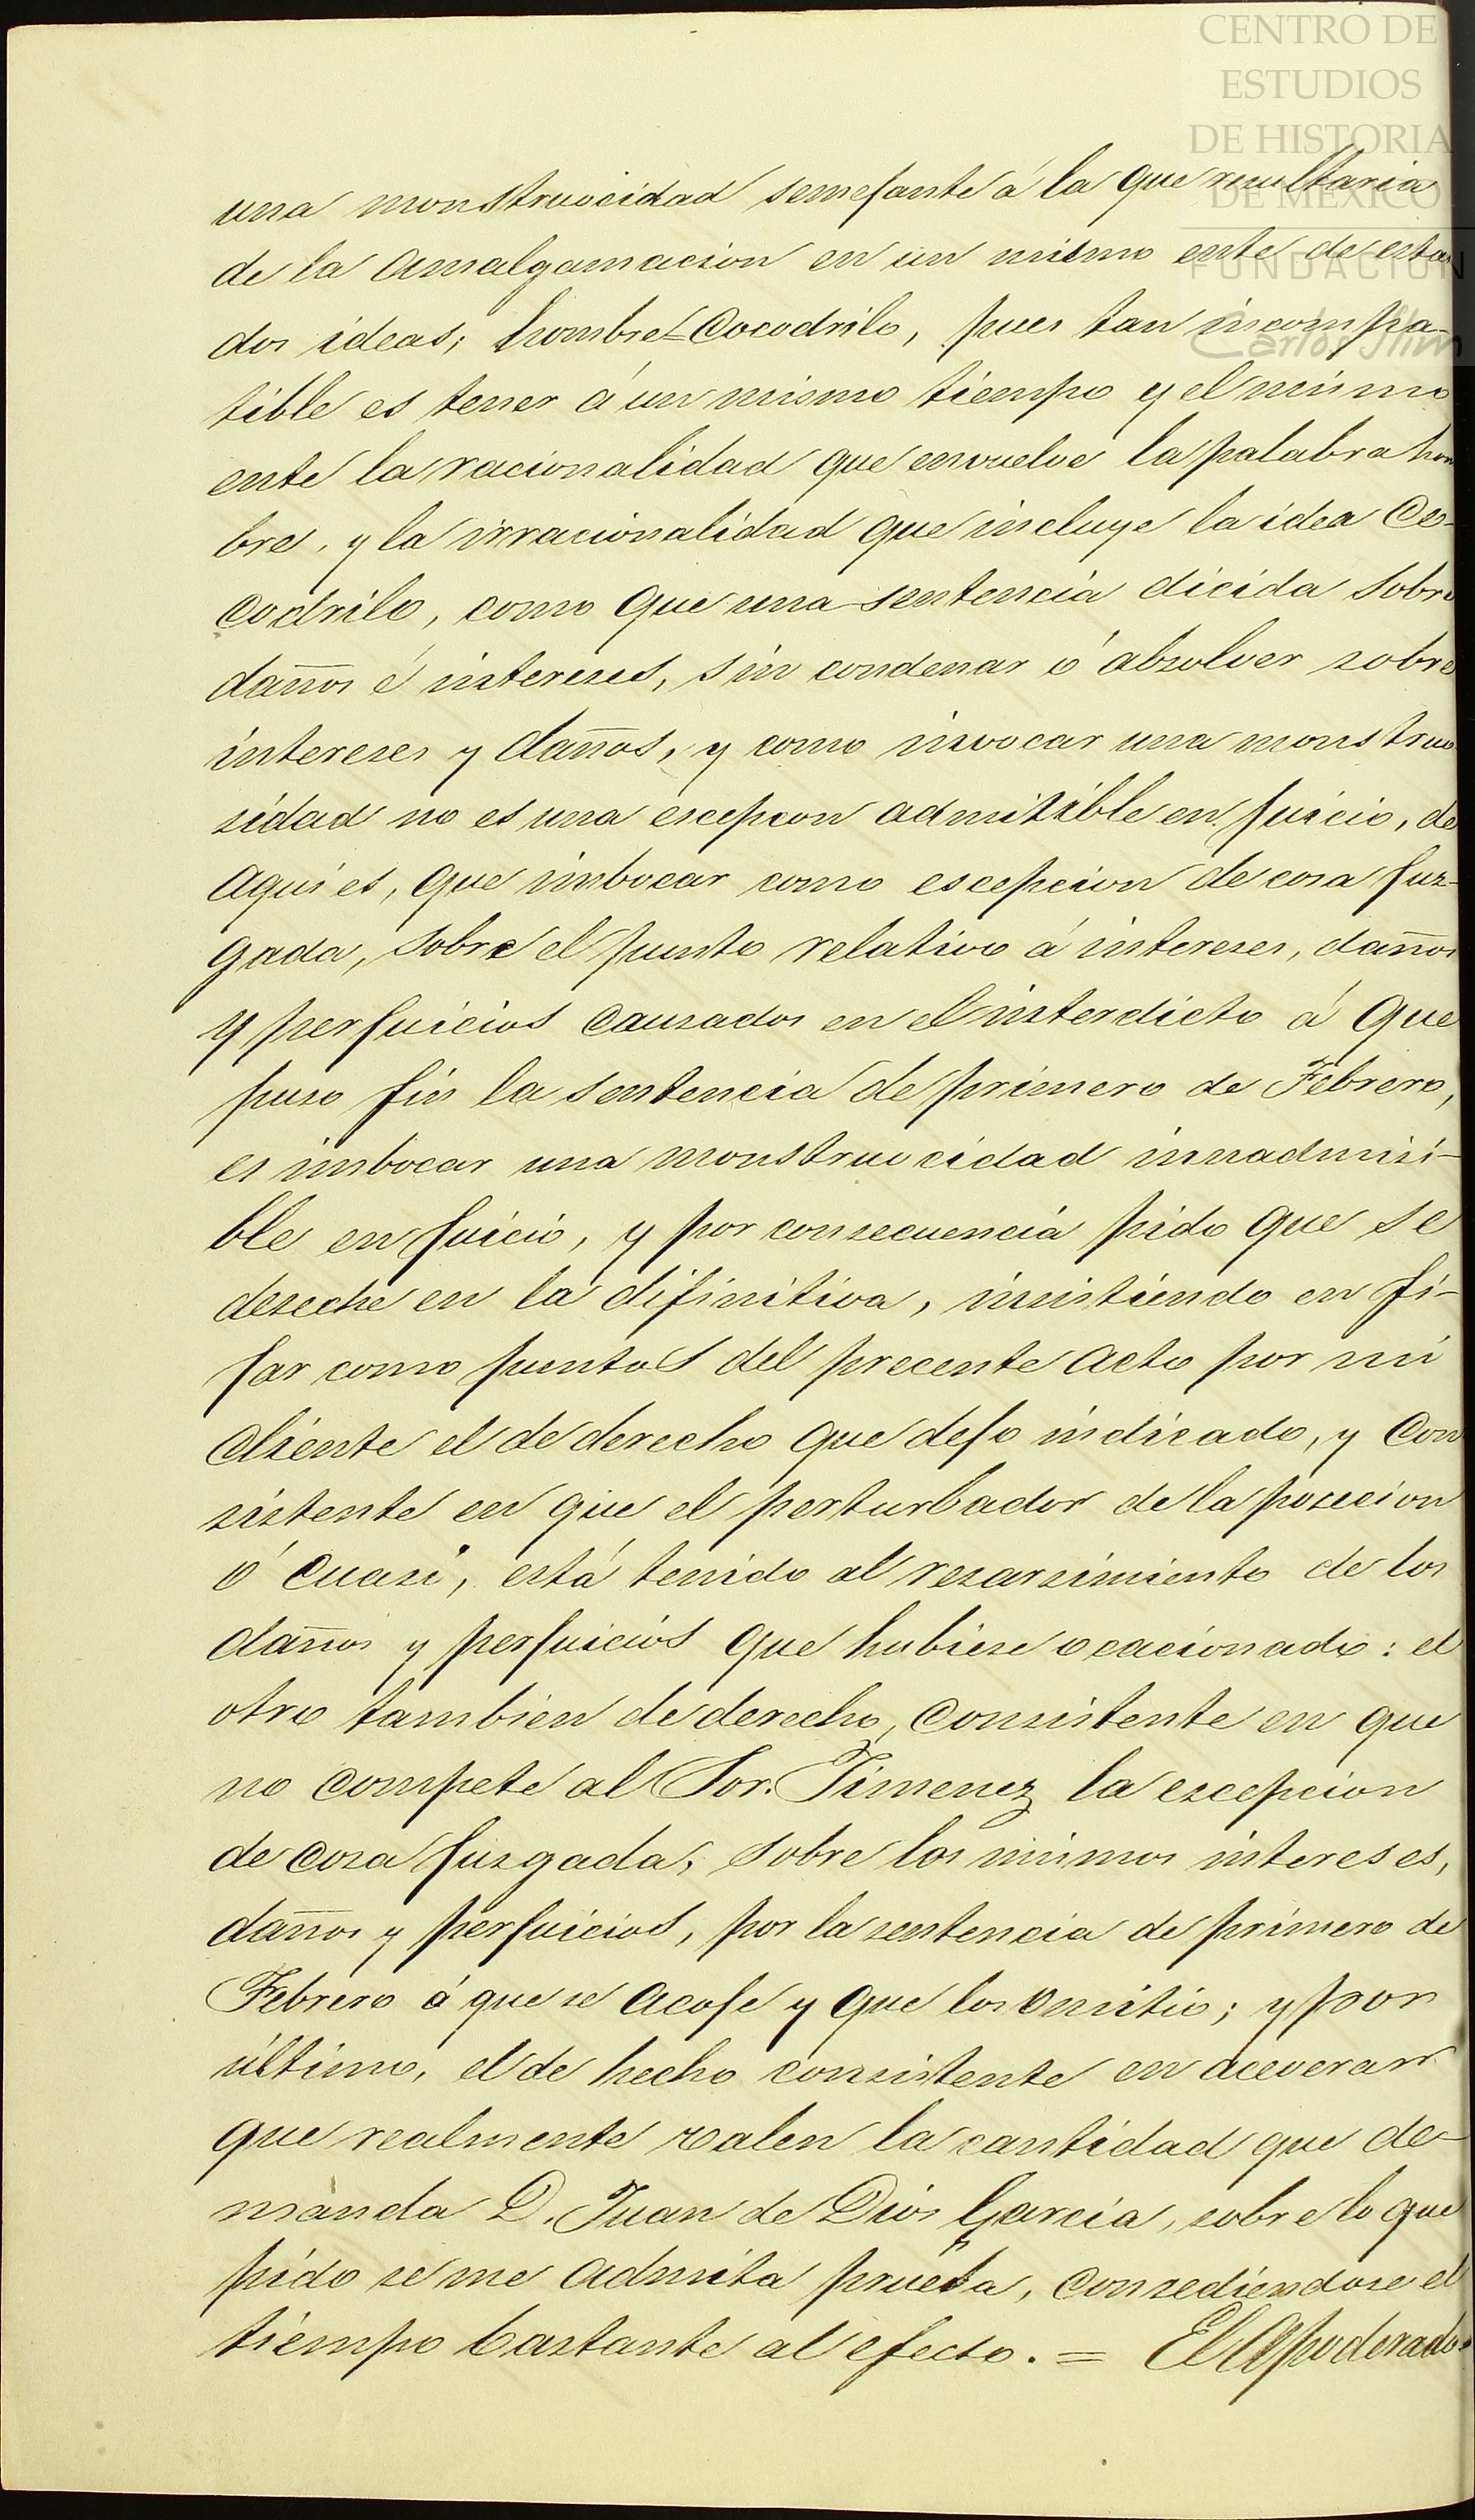 CENTRO DE
ESTUDIOS
DE HISTORIA
DE MEXICO
FUNDACION
Carlos Slim
una monstruocidad semejante á la que resultaria
de la amalgamacion en un mismo ente de estas
dos ideas; hombre-Cocodrilo, pues tan incompa-
tible es tener á un mismo tiempo y el mismo
ente la racionalidad que envuelve la palabra hom
bre, y la irracionalidad que incluye la idea Co-
codrilo, como que una sentencia dicida sobre
daños é intereses, sin condenar ó absolver sobre
intereses y daños, y como invocar una monstruo
sidad no es una escepcon admitible en juicio, de
aqui es, que imbocar como escepcion de cosa juz-
gada, sobre el punto relativo á intereses, daños
y perjuicios causados en el interdicto á que
puso fin la sentencia de primero de Febrero,
es imbocar una monstruocidad innadmisi-
ble en juicio, y por consecuencia pido que se
deseche en la difinitiva, insistiendo en fi-
jar como puntos del precente acto por mi
cliente el de derecho que dejo indicado, y con
sistente en que el perturbador de la posecion
ó cuasi, está tenido al resarsimiento de los
daños y perjuicios que hubiese ocacionado: el
otro tambien de derecho, consistente en que
no compete al Sor. Jimenez la escepcion
de cosa jusgada, sobre los mismos intereses,
daños y perjuicios, por la sentencia de primero de
Febrero á que se acoje y que los omitio; y por
último, el de hecho consistente en aceverar
que realmente valen la cantidad que de-
manda D. Juan de Dios Garcia, sobre lo que
pido se me admita prueba, consediendose el
tiempo bastante al efecto. = El Apoderado